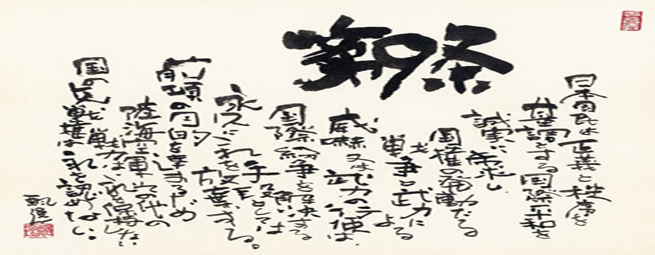 第9条
日本国民は正義と秩序を
基調とする国際平和を
誠実に希求し
国権の発動たる
戦争と武力に
よる
威嚇又は武力の行使は
国際紛争を解決する
手段としては
永久にこれを放棄する。
前項の目的を達するため
陸海空軍その他の
戦力はこれを保持しない
国の交戦権はこれを認めない。